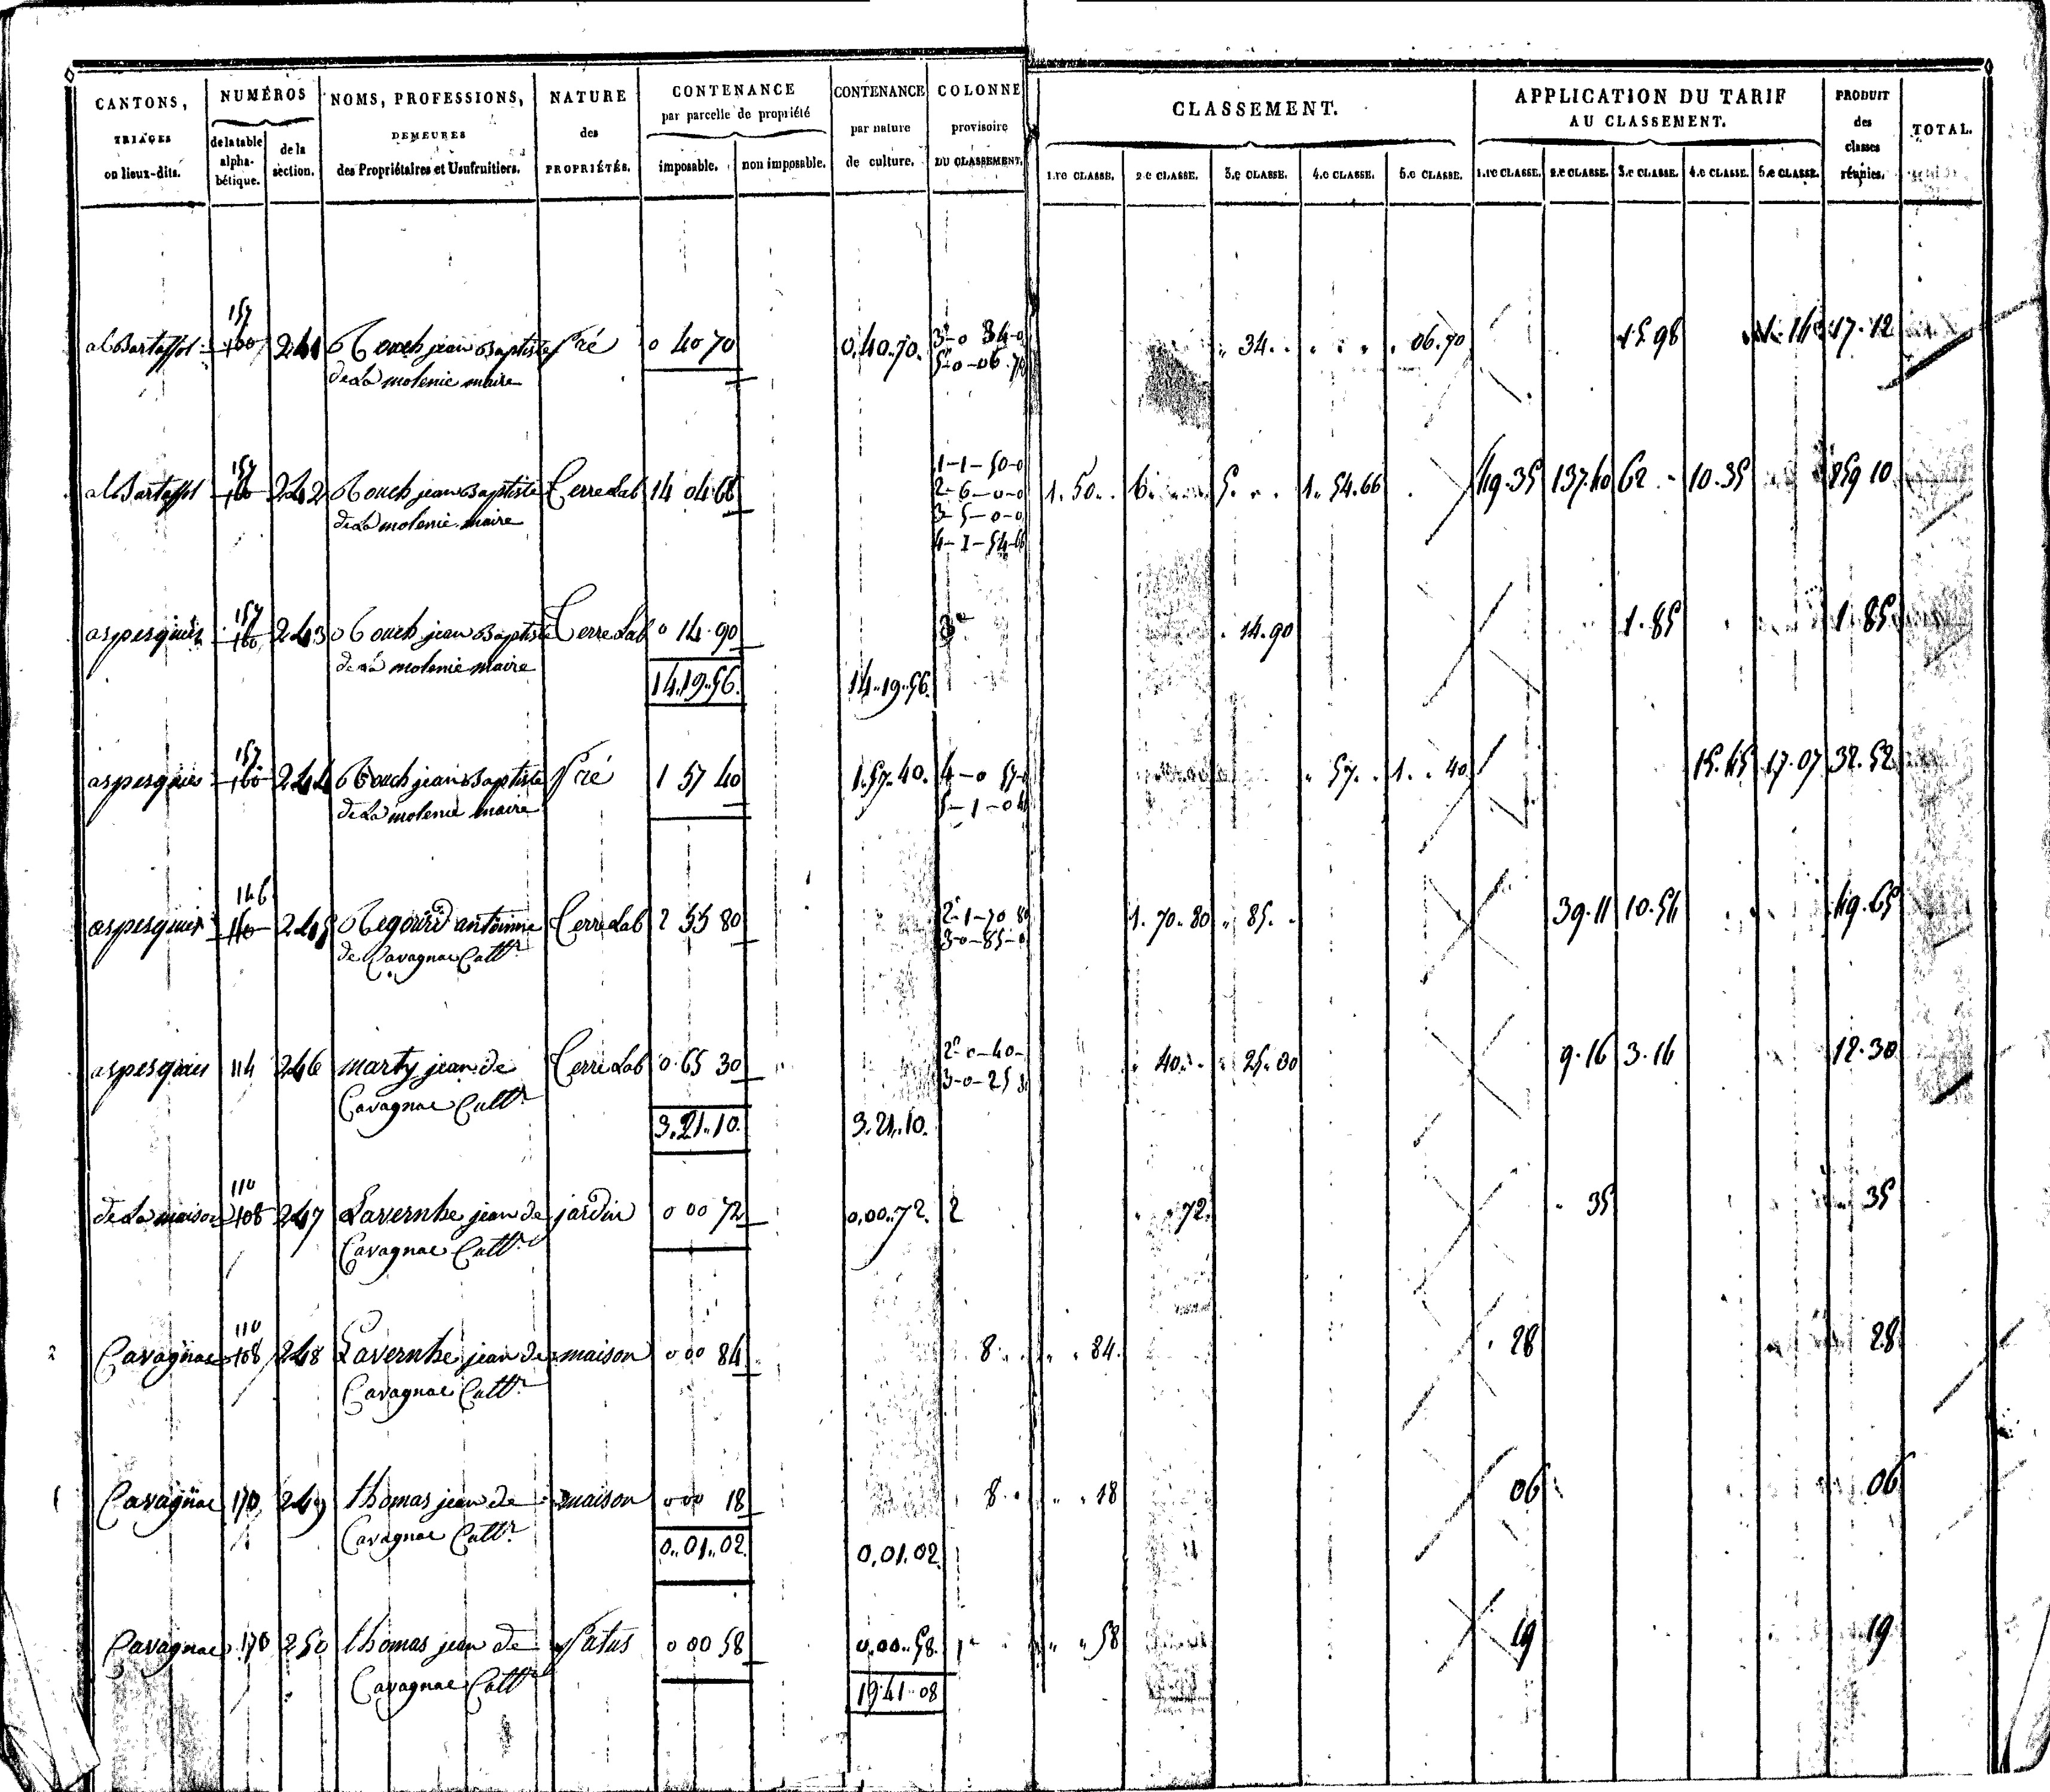 CANTONS, TRIAGES ou lieux-dits.
NUMÉROS
de la table alpha-bétique.
de la section.
NOMS, PROFESSIONS, DEMEURES des Propriétaires et Usufruitiers.
NATURE des PROPRIÉTÉS.
CONTENANCE par parcelle de propriété
imposable.
non imposable.
CONTENANCE par nature de culture.
COLONNE provisoire DU CLASSEMENT.
CLASSEMENT.
1.re CLASSE. 2.e CLASSE. 3.e CLASSE. 4.e CLASSE. 5.e CLASSE.
APPLICATION DU TARIF AU CLASSEMENT.
1.re CLASSE. 2.e CLASSE. 3.e CLASSE. 4.e CLASSE. 5.e CLASSE.
PRODUIT des classes réunies.
TOTAL.
157
160 241 jean Baptiste Pré 0 40 70 0,40.70. 3-0 34-0 34. 06.70 15.98 1.14 17.12
de La molenie maire 5-0-06.70
157 1-1-50-0
160 242 jean Baptiste Terre Lab 14 04 66 2-6-0-0 1.50 6. 5. 1.54.66 49.35 137.40 62 10.35 259 10
de La molenie maire 3-5-0-0
4-1-54-66
157
aspesquies 160 243 jean Baptiste Terre Lab 0 14.90 3e 14.90 1.85 1.85
de La molenie maire
14.19.56. 14.19.56.
157
aspesquies 160 244 jean Baptiste Pré 1 57 40 1.57.40. 4-0 57-0 57. 1. 40 15.45 17.07 32.52
de La molenie maire 5-1-0 40
146
aspesquies 110 245 antoinne Terre Lab 2 55 80 2-1-70 80 1.70.80 85. 39.11 10.54 49.65
de Cavagnac Cultr 3-0-85-0
aspesquies 114 246 marty jean de Terre Lab 0.65 30 2-0-40- 40. 25.30 9.16 3.14 12.30
Cavagnac Cultr 3-0-25 3
3.21.10. 3.21.10.
110
de La maison 108 247 Lavernhe jean de jardin 0 00 72 0,00.72. 2 72. 35 35
Cavagnac Cultr
110
2 Cavagnac 108 248 Lavernhe jean de maison 0 00 84 8. 84. 28 28
Cavagnac Cultr
1 Cavagnac 170 249 thomas jean de maison 0 00 18 8. 18 06 06
Cavagnac Cultr
0.01.02. 0,01.02.
Cavagnac 170 250 thomas jean de Patus 0 00 58 0,00.58. 1e 58 19 19
Cavagnac Cultr
19.41.08